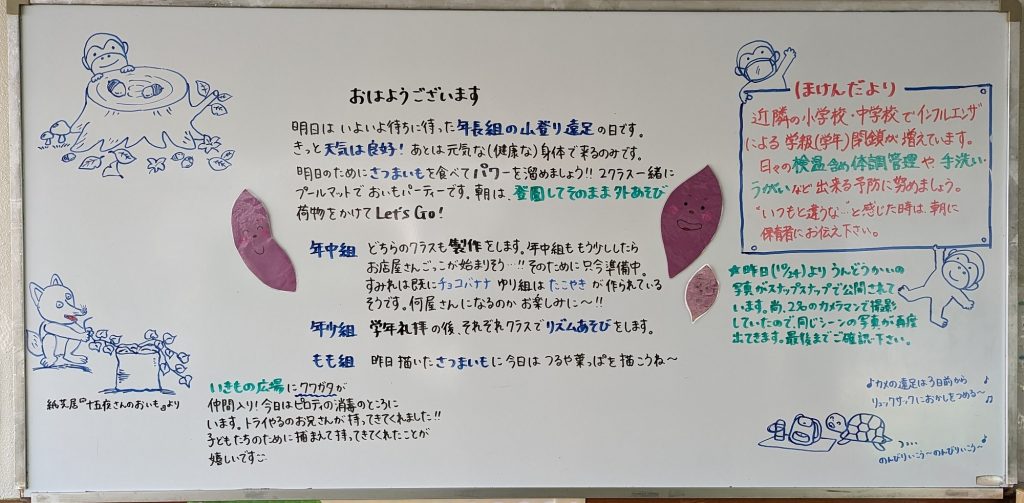 おはようございます
明日は いよいよ待ちに待った年長組の山登り遠足の日です。
きっと天気は良好！あとは元気な(健康な)身体で来るのみです。
明日のためにさつまいもを食べてパワーを溜めましょう!! 2クラス一緒に
プールマットでおいもパーティーです。朝は、登園してそのまま外あそび
荷物をかけてLet's Go!
年中組 どちらのクラスも製作をします。年中組ももう少ししたら
お店屋さんごっこが始まりそう…!! そのために只今準備中。
すみれは既にチョコバナナ ゆり組はたこやきが作られている
そうです。何屋さんになるのかお楽しみに〜!!
年少組 学年礼拝の後、それぞれクラスでリズムあそびをします。
もも組 昨日描いたさつまいもに今日はつるや葉っぱを描こうね〜
いきもの広場にクワガタが
仲間入り！今日はピロティの消毒のところに
います。トライやるのお兄さんが持ってきてくれました!!
子どもたちのために捕まえて持ってきてくれたことが
嬉しいです
紙芝居『十五夜さんのおいも』より
ほけんだより
近隣の小学校・中学校でインフルエンザ
による学級(学年)閉鎖が増えています。
日々の検温含め体調管理や手洗い・
うがいなど出来る予防に努めましょう。
"いつもと違うな…"と感じた時は、朝に
保育者にお伝え下さい。
★昨日(10/24)よりうんどうかいの
写真がスナップスナップで公開されて
います。尚、2名のカメラマンで撮影
していたので、同じシーンの写真が再度
出てきます。最後までご確認下さい。
♪カメの遠足は3日前から♪
リュックサックにおかしをつめる〜♫
のんびりいこう〜のんびりいこう〜♪